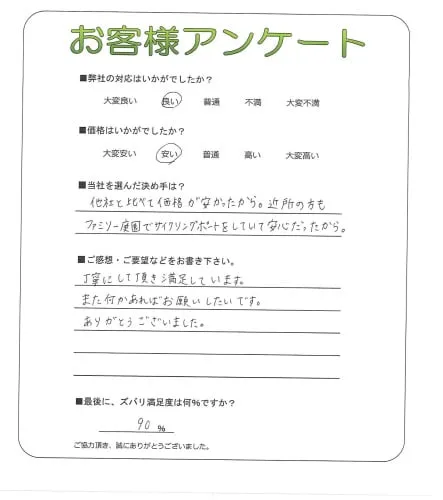 お客様アンケート
■弊社の対応はいかがでしたか？
大変良い 良い 普通 不満 大変不満
■価格はいかがでしたか？
大変安い 安い 普通 高い 大変高い
■当社を選んだ決め手は？
他社と比べて価格が安かったから。近所の方も
ファミリー庭園でサイクリングポートをしていて安心だったから。
■ご感想・ご要望などをお書き下さい。
丁寧にして頂き満足しています。
また何かあればお願いしたいです。
ありがとうございました。
■最後に、ズバリ満足度は何%ですか？
90 %
ご協力頂き、誠にありがとうございました。